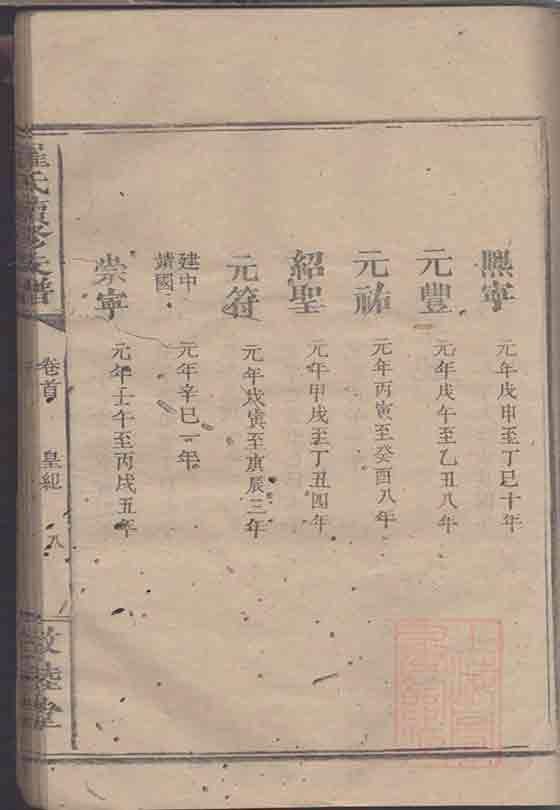 熙寧 元年戊申至丁巳十年
元豐 元年戊午至乙丑八年
元祐 元年丙寅至癸酉八年
紹聖 元年甲戌至丁丑四年
元符 元年戊寅至庚辰三年
建中靖國 元年辛巳一年
崇寧 元年壬午至丙戌五年
氏續修支譜
卷首 皇紀 八
敦睦堂